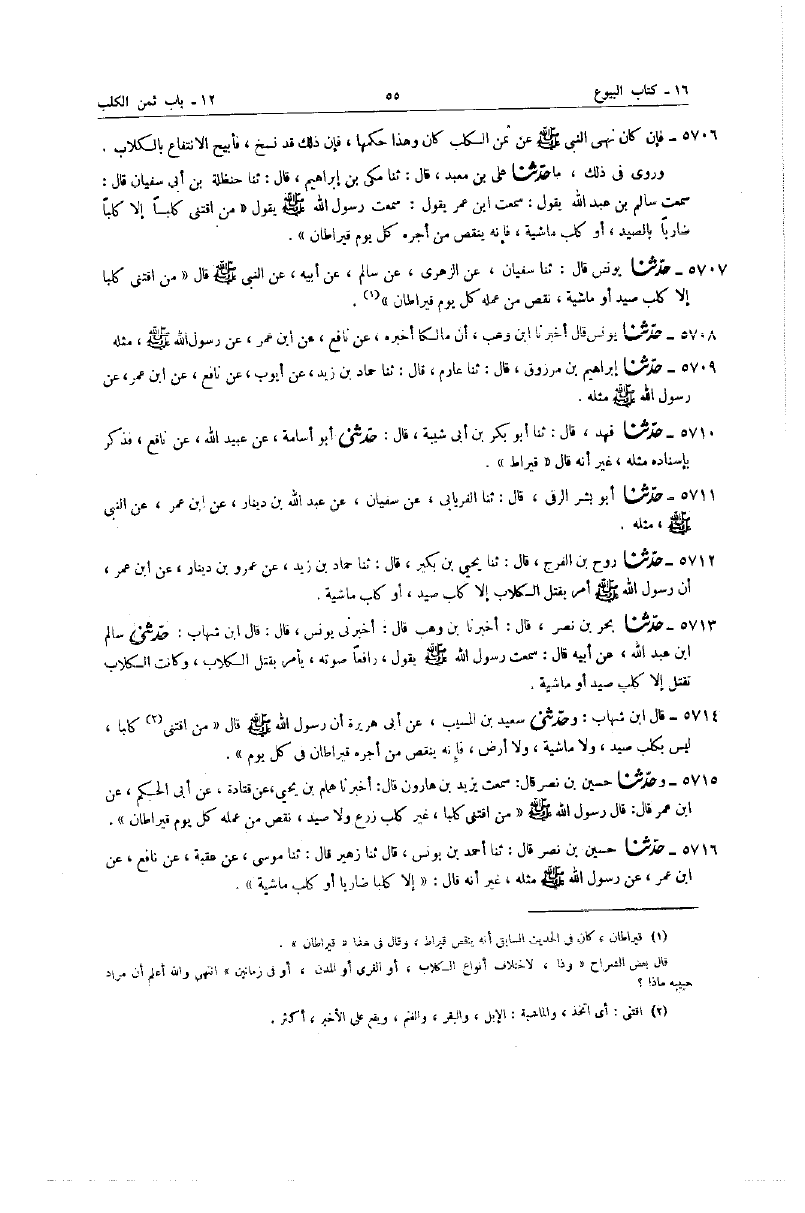 ١٦ - كتاب البيوع ٥٥ ١٢ - باب ثمن الكلب
٥٧٠٦ - فإن كان نهى النبي ﷺ عن ثمن الكلب كان وهذا حكمها ، فإن ذلك قد نسخ ، فأبيح الانتفاع بالكلاب .
وروى فى ذلك ، ما حدثنا على بن معبد ، قال : ثنا مكى بن إبراهيم ، قال : ثنا حنظلة بن أبى سفيان قال :
سمعت سالم بن عبد الله يقول : سمعت ابن عمر يقول : سمعت رسول الله ﷺ يقول « من اقتنى كلبـاً إلا كلباً
ضارياً بالصيد ، أو كلب ماشية ، فإنه ينقص من أجره كل يوم قيراطان » .
٥٧٠٧ - حدثنا يونس قال : ثنا سفيان ، عن الزهرى ، عن سالم ، عن أبيه ، عن النبي ﷺ قال « من اقتنى كلبا
إلا كلب صيد أو ماشية ، نقص من عمله كل يوم قيراطان »(١) .
٥٧٠٨ - حدثنا يونس قال أخبرنا ابن وهب ، أن مالكا أخبره ، عن نافع ، عن ابن عمر ، عن رسول الله ﷺ ، مثله
٥٧٠٩ - حدثنا إبراهيم بن مرزوق ، قال : ثنا عارم ، قال : ثنا حماد بن زيد ، عن أيوب ، عن نافع ، عن ابن عمر ، عن
رسول الله ﷺ مثله .
٥٧١٠ - حدثنا فهد ، قال : ثنا أبو بكر بن أبى شيبة ، قال : حدثنى أبو أسامة ، عن عبيد الله ، عن نافع ، فذكر
بإسناده مثله ، غير أنه قال « قيراط » .
٥٧١١ - حدثنا أبو بشر الرقى ، قال : ثنا الفريابى ، عن سفيان ، عن عبد الله بن دينار ، عن ابن عمر ، عن النبي
ﷺ ، مثله .
٥٧١٢ - حدثنا روح بن الفرج ، قال : ثنا يحيى بن بكير ، قال : ثنا حماد بن زيد ، عن عمرو بن دينار ، عن ابن عمر ،
أن رسول الله ﷺ أمر بقتل الكلاب إلا كلب صيد ، أو كلب ماشية .
٥٧١٣ - حدثنا بحر بن نصر ، قال : أخبرنا بن وهب قال : أخبرنى يونس ، قال : قال ابن شهاب : حدثنى سالم
ابن عبد الله ، عن أبيه قال : سمعت رسول الله ﷺ يقول ، رافعاً صوته ، يأمر بقتل الكلاب ، وكانت الكلاب
تقتل إلا كلب صيد أو ماشية .
٥٧١٤ - قال ابن شهاب : وحدثنى سعيد بن المسيب ، عن أبى هريرة أن رسول الله ﷺ قال « من اقتنى(٢) كلبا ،
ليس بكلب صيد ، ولا ماشية ، ولا أرض ، فإنه ينقص من أجره قيراطان فى كل يوم » .
٥٧١٥ - وحدثنا حسين بن نصر قال : سمعت يزيد بن هارون قال : أخبرنا همام بن يحيى ، عن قتادة ، عن أبى الحكم ، عن
ابن عمر قال : قال رسول الله ﷺ « من اقتنى كلبا ، غير كلب زرع ولا صيد ، نقص من عمله كل يوم قيراطان » .
٥٧١٦ - حدثنا حسين بن نصر قال : ثنا أحمد بن يونس ، قال ثنا زهير قال : ثنا موسى ، عن عقبة ، عن نافع ، عن
ابن عمر ، عن رسول الله ﷺ مثله ، غير أنه قال : « إلا كلبا ضاريا أو كلب ماشية » .
(١) قيراطان ، كان فى الحديث السابق أنه ينقص قيراط ، وقال فى هذا « قيراطان » .
قال بعض الشراح « وذا ، لاختلاف أنواع الكلاب ، أو القرى أو المدن ، أو فى زمانين » انتهى والله أعلم أن مراد
حبيبه ماذا ؟
(٢) اقتنى : أى اتخذ ، والماشية : الإبل ، والبقر ، والغنم ، ويقع على الأخير ، أكثر .